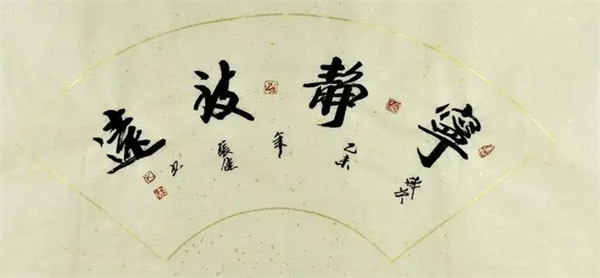 寧靜致遠
乙未
年
張健
书